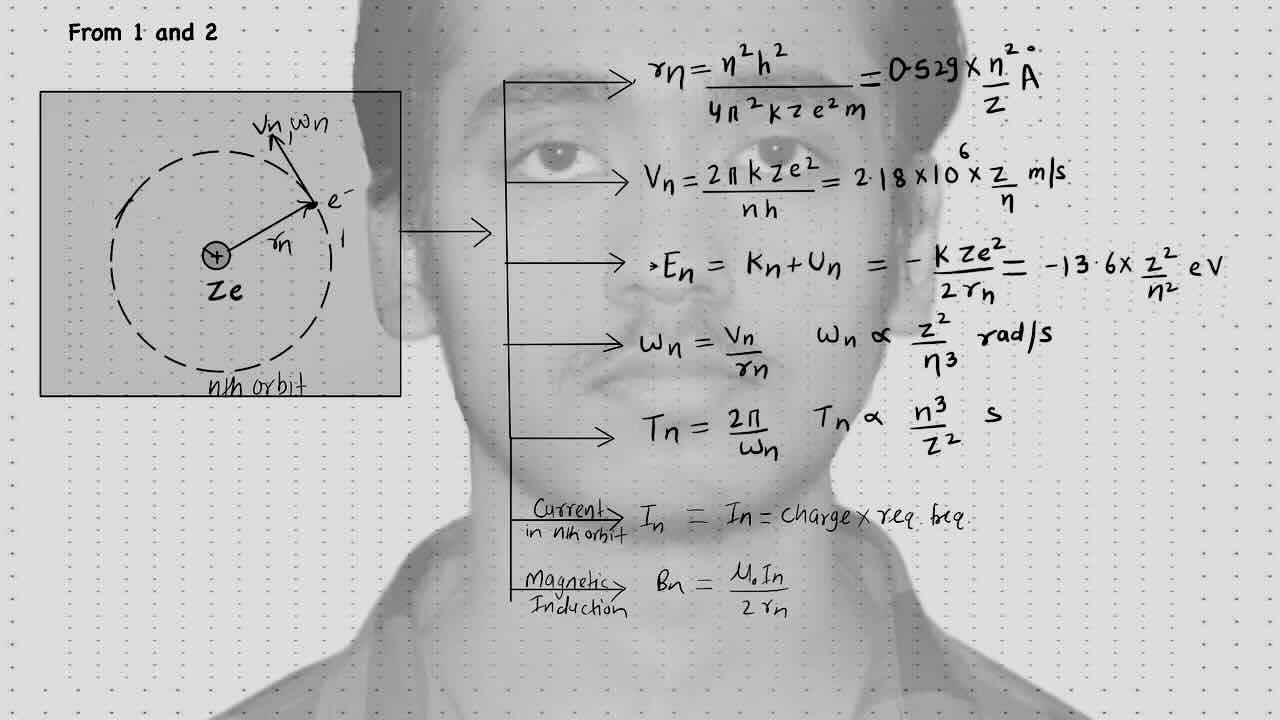 From 1 and 2
Vn, ωn
e⁻
rn
+
Ze
nth orbit
rn = n²h² / 4π²kze²m = 0.529 × n²/z Å
Vn = 2πkze² / nh = 2.18 × 10⁶ × z/n m/s
En = Kn + Un = - kze² / 2rn = -13.6 × z²/n² eV
ωn = Vn / rn ωn ∝ z²/n³ rad/s
Tn = 2π / ωn Tn ∝ n³/z² s
Current in nth orbit In = In = charge × req. freq.
Magnetic Induction Bn = μ₀In / 2rn